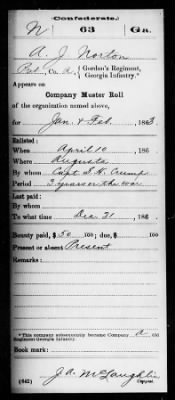 Confederate.
N 63 Ga.
A. J. Norton
Pvt., Co. A., Gordon's Regiment,
Georgia Infantry.*
Appears on
Company Muster Roll
of the organization named above,
for Jan. & Feb., 1863.
Enlisted:
When April 10, 186
Where Augusta
By whom Capt. S. H. Crump
Period 3 years or the war
Last paid:
By whom
To what time Dec. 31, 186 .
Bounty paid, $ 50 100; due, $ 100
Present or absent Present
Remarks:
*This company subsequently became Company A, 63
Regiment Georgia Infantry.
Book mark:
J. A. McLaughlin
(642) Copyist.